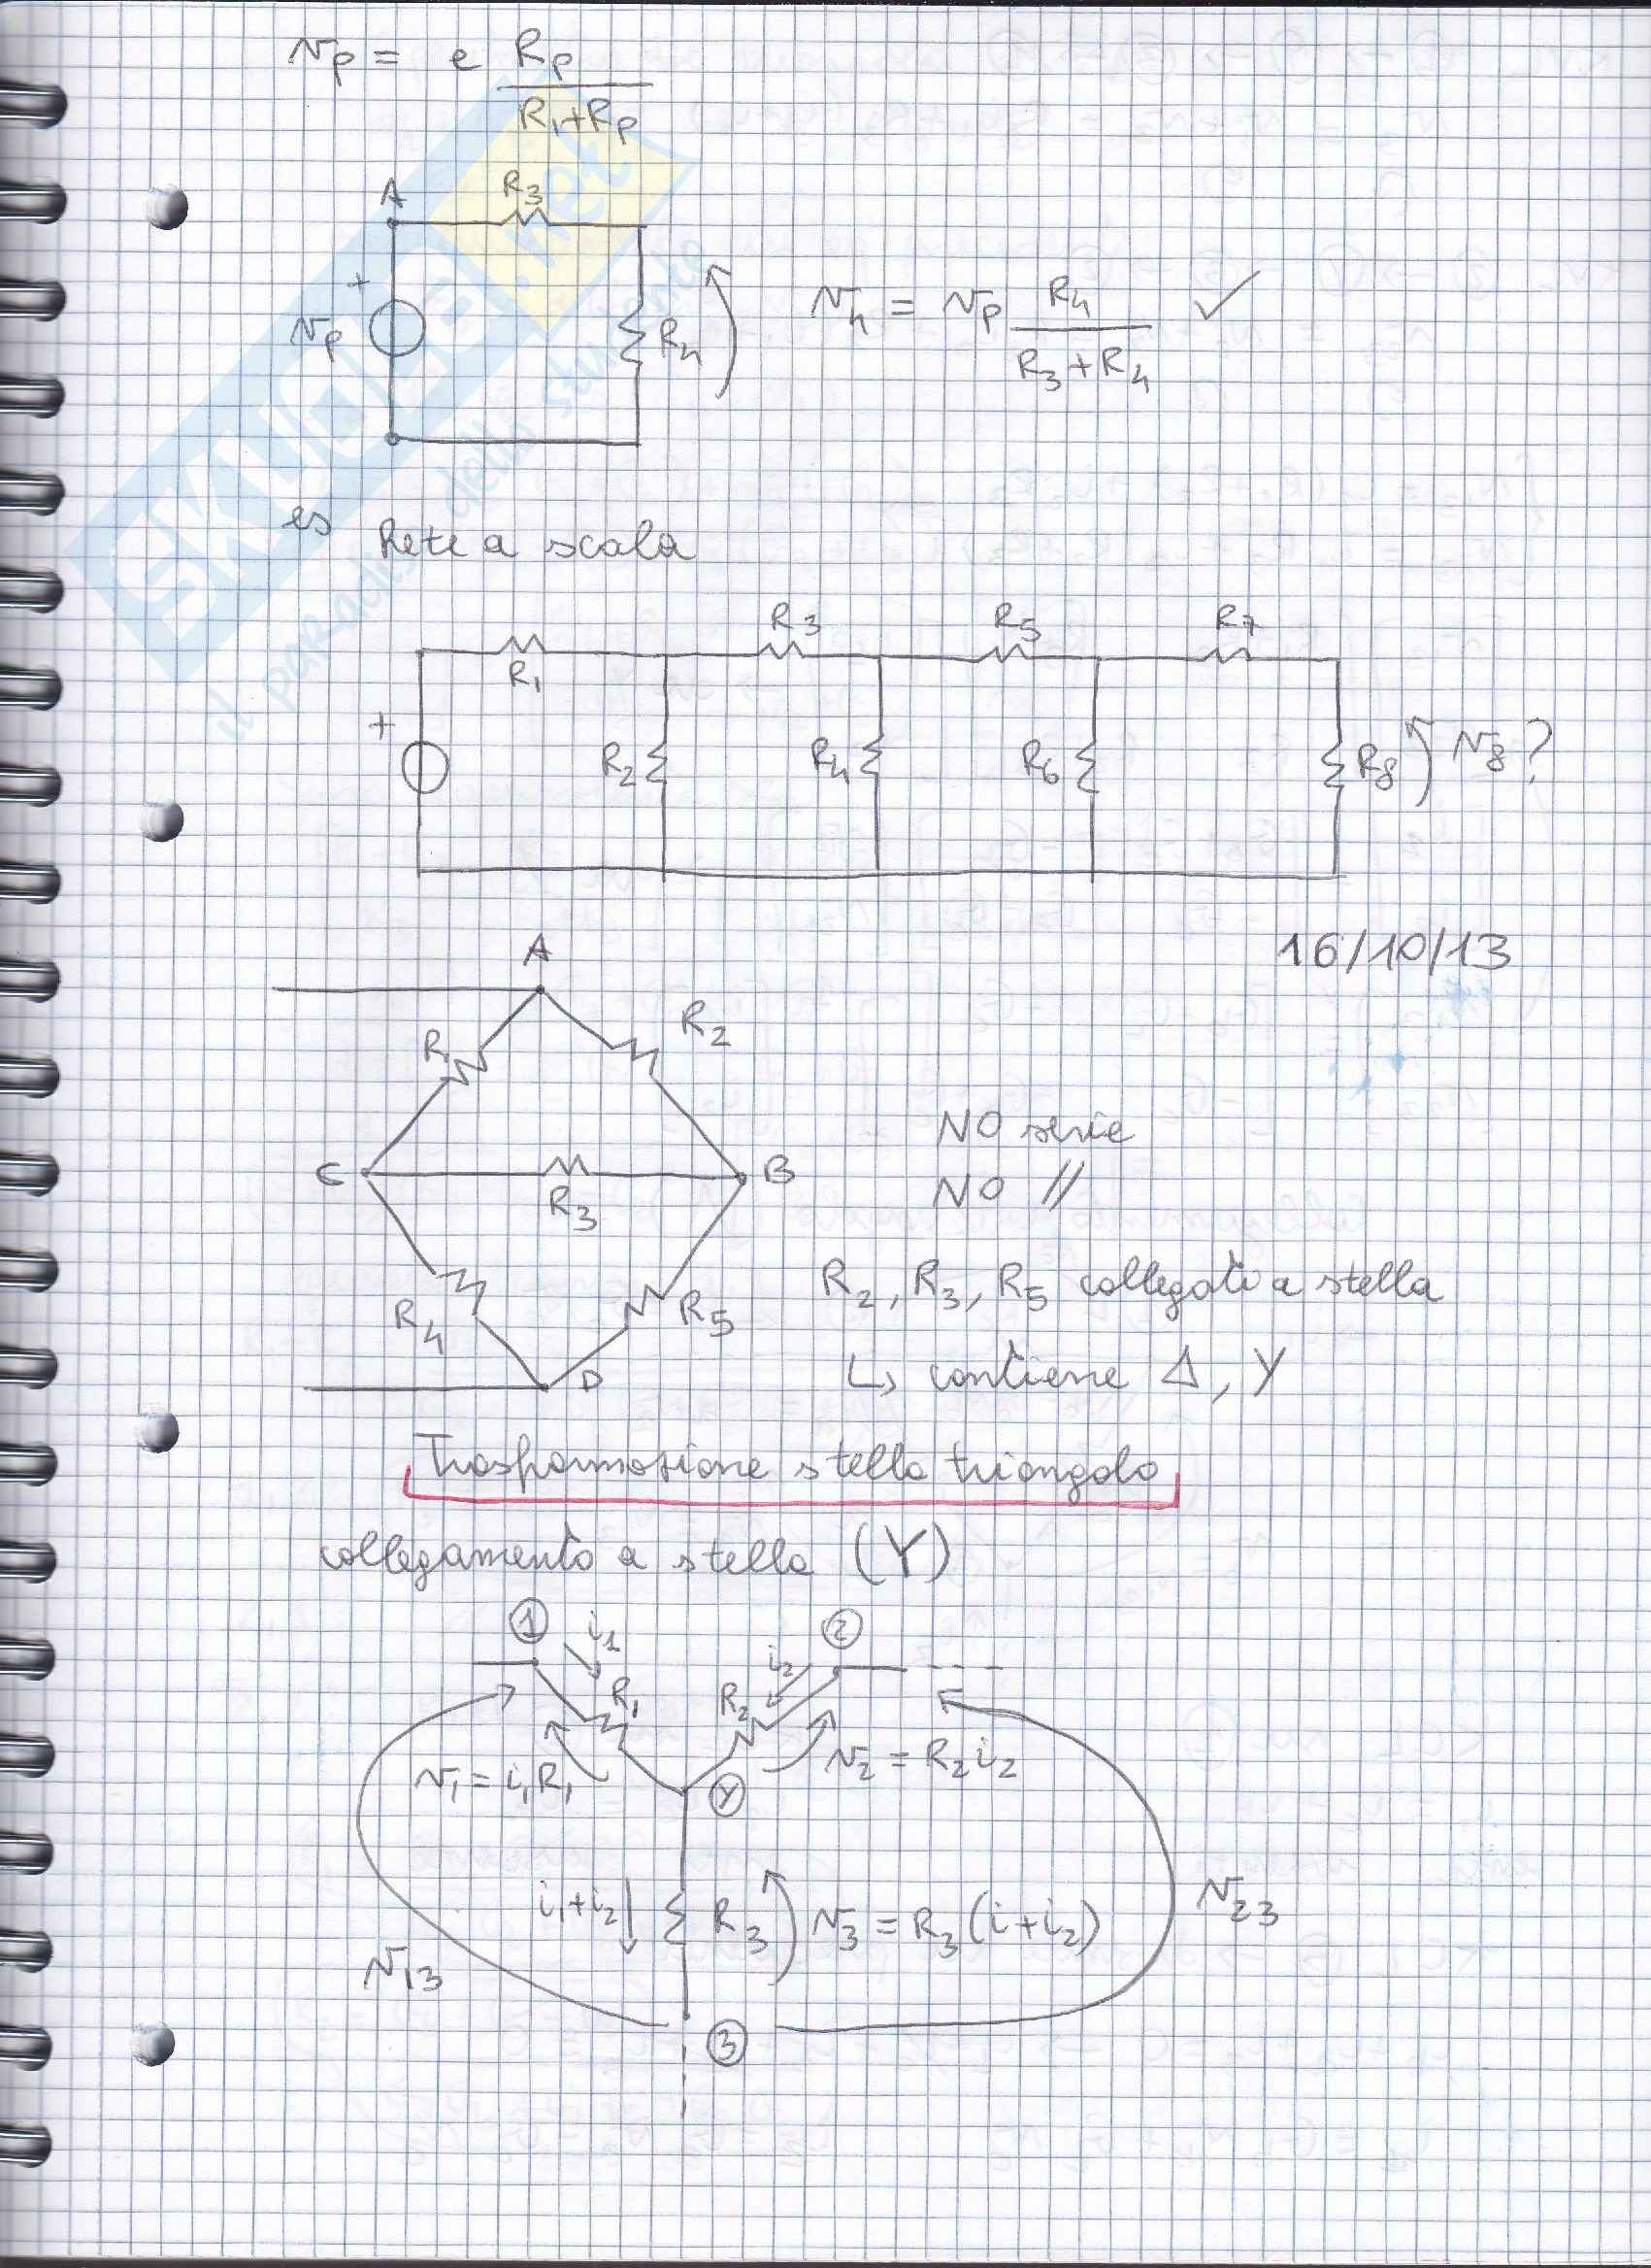 v_p = e R_p / (R_1+R_p)
A
R_3
+
v_p
R_4
v_4 = v_p R_4 / (R_3+R_4) ✓
es Rete a scala
R_1 R_3 R_5 R_7
+
R_2 R_4 R_6 R_8 v_8?
16/10/13
A
R_1 R_2
NO serie
C R_3 B
NO //
R_2, R_3, R_5 collegati a stella
R_4 R_5
D
↳ contiene Δ, Y
Trasformazione stella triangolo
collegamento a stella (Y)
1 i_1 2
i_2
R_1 R_2
v_1 = i_1R_1 Y v_2 = R_2 i_2
i_1+i_2 R_3 v_3 = R_3(i+i_2) v_23
v_13
3
SKUOLA.net
il paradiso dello studente